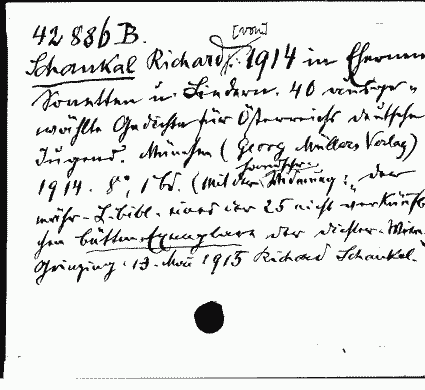 42 886 B.
[von]
Schaukal Richard, 1914 in Ehernen
Sonetten u. Liedern. 40 ausge-
wählte Gedichte für Österreichs deutsche
Jugend. München (Georg Müllers Verlag)
1914. 8°, 1 Bd. (Mit der handschr. Widmung: „der
mähr. L. bibl. eines der 25 nicht verkäufli
chen bütten-Exemplare der Dichter.
Grinzing. 13. Mai 1915 Richard Schaukal.